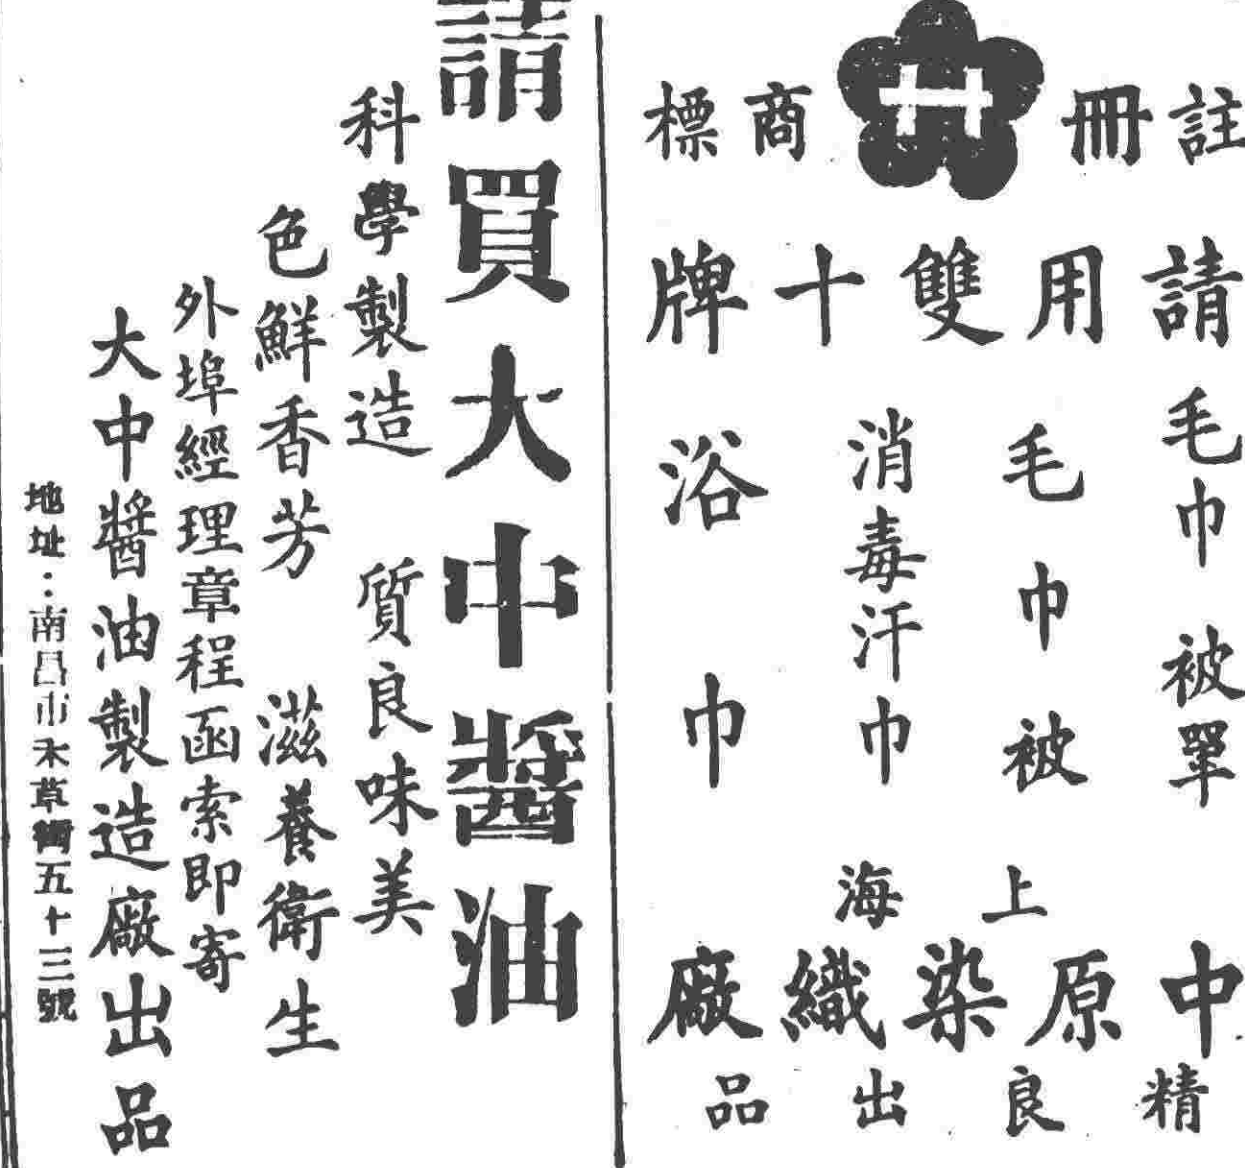 註冊商標
請用雙十牌
毛巾被單
毛巾被
消毒汗巾
浴巾
上海
中原染織廠
精良出品
請買大中醬油
科學製造 質良味美
色鮮香芳 滋養衛生
外埠經理章程函索即寄
大中醬油製造廠出品
地址:南昌市禾草街五十三號